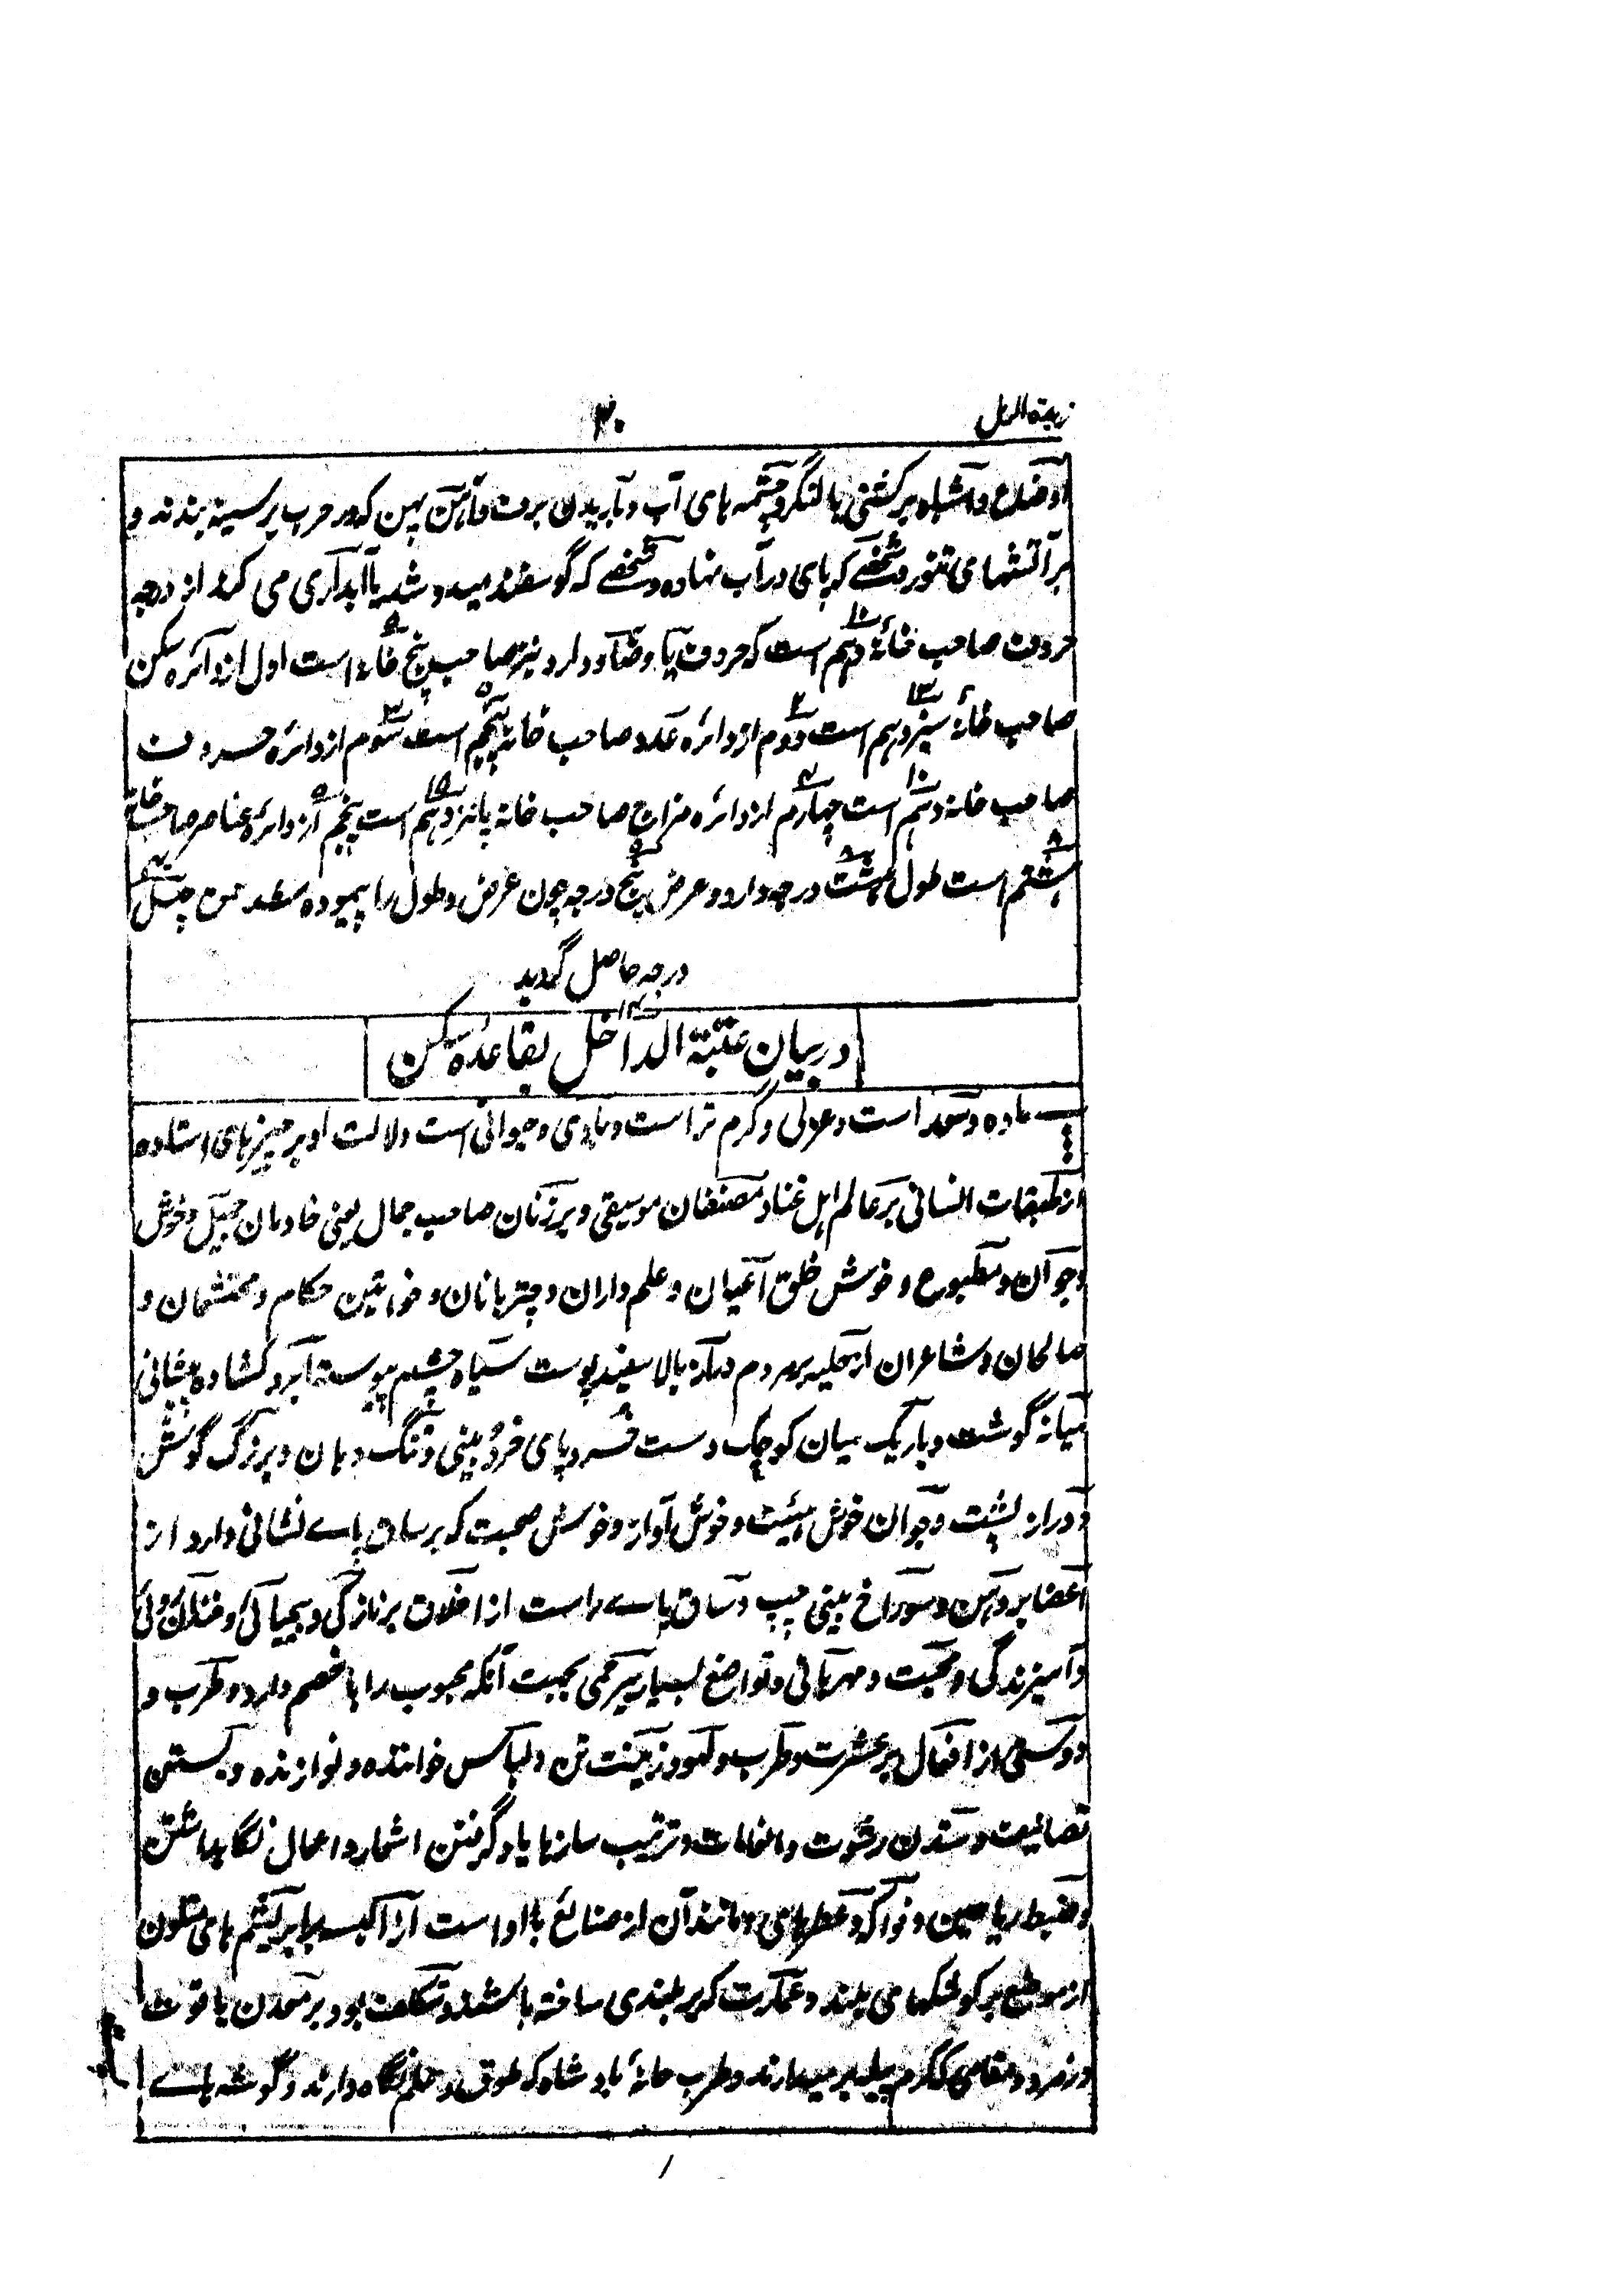 زبدة الرمل
۳۰
اوضاع و اشباه بر کشتی با لنگر و چشمه های آب و باریدن برف و آهن پهن که در حرب بر سینه بندند و
بر آتشهای تنور و شخصے که پای در آب نهاده و شخصے که گوسفند میدوشد یا آبداری می کند از درجه
حروف صاحب خانهٔ دهم است که حروف یا و ضاد دارد نیز صاحب پنج خانه است اول از دائره سکن
صاحب خانهٔ سیزدهم است دوم از دائره عدد صاحب خانه پنجم است سوم از دائره حروف
صاحب خانه دهم است چهارم از دائره مزاج صاحب خانه پانزدهم است پنجم از دائره عناصر صاحب خانهٔ
هشتم است طول هشت درجه دارد و عرض پنج درجه چون عرض و طول را پیموده شد من چهل
درجه حاصل گردید
در بیان عتبة الداخل بقاعده سکن
ماده و سعد است و عزلی و گرم تر است و بادی و حیوانی است دلالت او بر چیزهای استاده
از طبقات انسانی بر عالم اهل غنا و مصنفان موسیقی و بر زنان صاحب جمال یعنی خادمان جمیل و خوش
و جوان و مطبوع و خوش خلق اعیان و علم داران و چتر بانان و خواتین حکام و محتشمان و
صالحان و شاعران از حلیه بر مردم دراز بالا سفید پوست سیاه چشم پیوسته ابرو کشاده پیشانی
میانه گوشت و باریک میان کوچک دست خرد پای خرد بینی و تنگ دهان و بزرگ گوش
و دراز پشت و جوان خوش هیئت و خوش آواز و خوش صحبت که بر ساق پاے نشانی دارد از
اعضا بر دهن و سوراخ بینی چپ و ساق پاے راست از اخلاق بر نازگی و بیحیائی و خندان روئی
و آمیزندگی و محبت و مهربانی و تواضع بسیار بیرحمی بجهت آنکه محبوب را با خصم دارد و طرب و
دوستی از افعال بر عشرت و طرب و لهو و زینت تن و لباس خواننده و نوازنده و بستن
تصانیف و ستدن رشوت و انعامات و ترتیب سازها یاد گرفتن اشعار و اعمال نگاهداشتن
و ضبط ریاحین و فواکه و عطرهای و مانند آن از صنائع با او است از البسه بر ابریشم های متلون
از مواضع بر کوشکهای بلند و عمارت که بر بلندی ساخته باشند و تکلف بود بر معدن یاقوت
و زمرد و مقامی که کرم پیله بر میدارند و طرب خانهٔ بادشاه که طوق و علم نگاه دارند و گوشه هاے